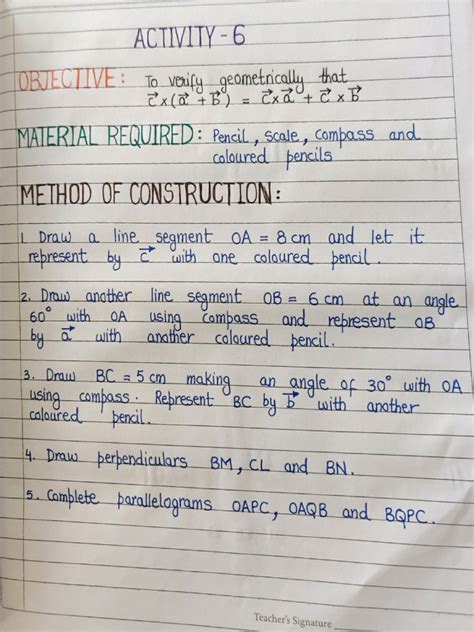 ACTIVITY - 6
OBJECTIVE : To verify geometrically that
c⃗ × (a⃗ + b⃗) = c⃗ × a⃗ + c⃗ × b⃗
MATERIAL REQUIRED : Pencil, scale, compass and
coloured pencils
METHOD OF CONSTRUCTION :
1. Draw a line segment OA = 8 cm and let it
represent by c⃗ with one coloured pencil.
2. Draw another line segment OB = 6 cm at an angle
60° with OA using compass and represent OB
by a⃗ with another coloured pencil.
3. Draw BC = 5 cm making an angle of 30° with OA
using compass. Represent BC by b⃗ with another
coloured pencil.
4. Draw perpendiculars BM, CL and BN.
5. Complete parallelograms OAPC, OAQB and BQPC.
Teacher's Signature